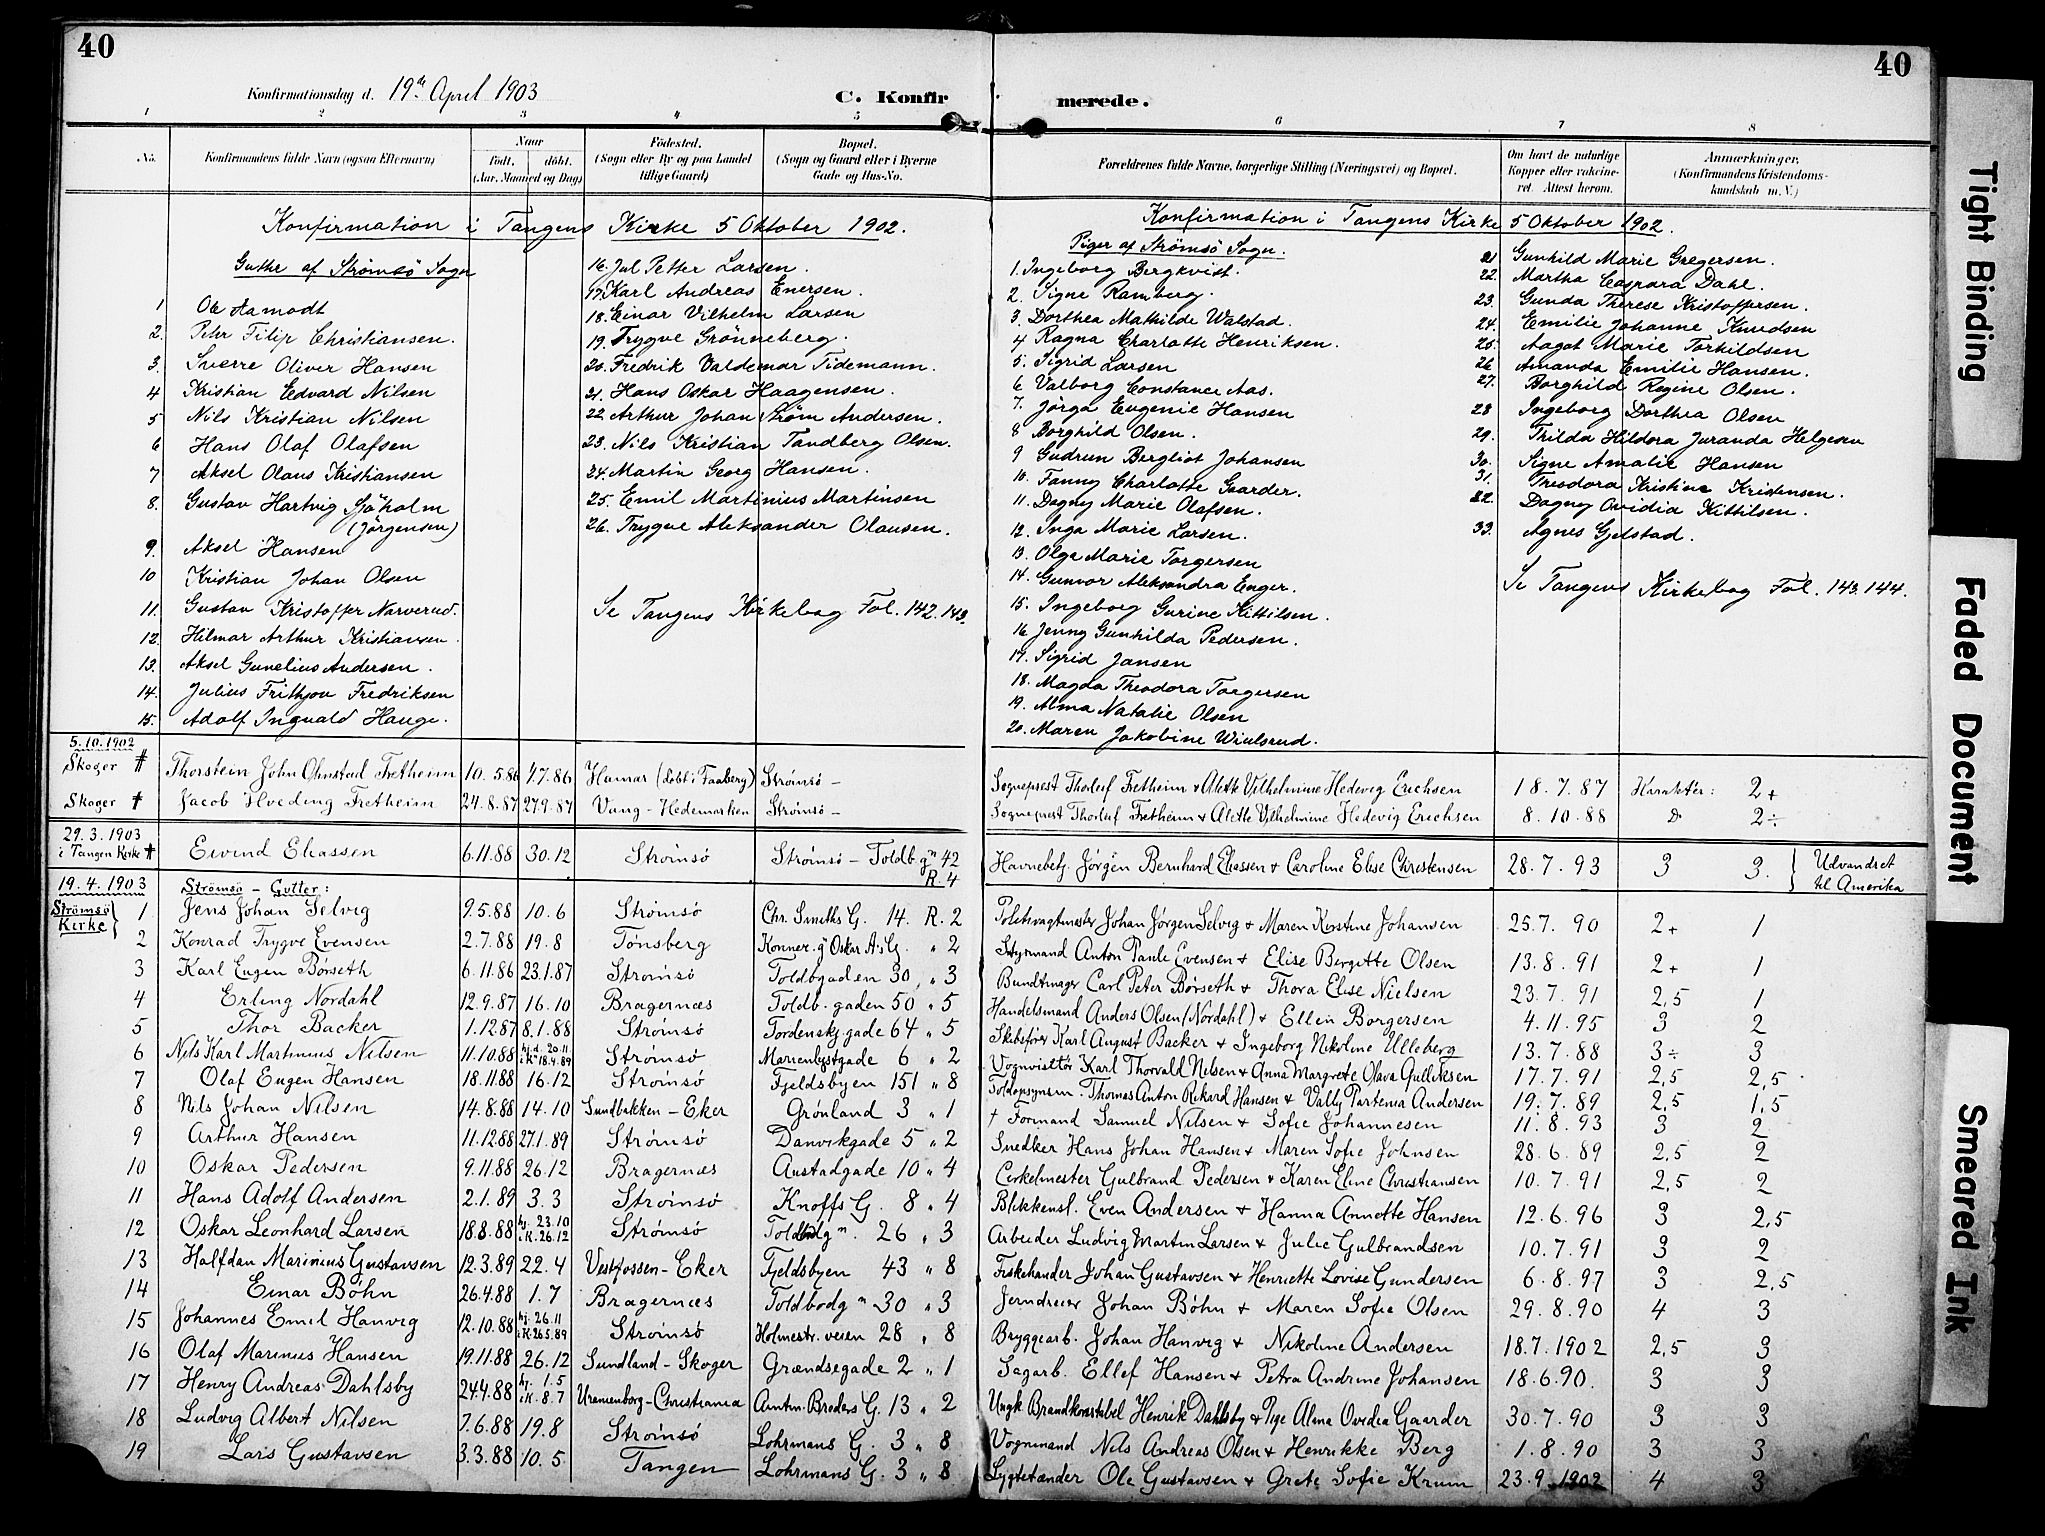 40
40
Konfirmationsdag d. 19de April 1903
C. Konfirmerede.
1 2 3 4 5 6 7 8
No.
Konfirmandens fulde Navn (ogsaa Efternavn)
Naar
født. døbt.
(Aar, Maaned og Dag)
Fødested.
(Sogn eller By og paa Landet
tillige Gaard)
Bopæl.
(Sogn og Gaard eller i Byerne
Gade og Hus-No.
Forældrenes fulde Navne, borgerlige Stilling (Næringsvei) og Bopæl.
Om havt de naturlige
Kopper eller vakcine-
ret. Attest herom.
Anmærkninger,
(Konfirmandens Kristendoms-
kundskab m. V.)
Konfirmation i Tangens Kirke 5 Oktober 1902.
Gutter af Strømsø Sogn
1 Ole Aamodt
2. Peter Filip Christiansen.
3. Sverre Oliver Hansen
4 Kristian Edvard Nilsen
5 Nils Kristian Nilsen
6 Hans Olaf Olafsen
7 Aksel Olaus Kristiansen
8. Gustav Hartvig Sjöholm
(Jörgensen)
9. Aksel Hansen
10 Kristian Johan Olsen
11. Gustav Kristoffer Narverud.
12. Hilmar Arthur Kristiansen.
13. Aksel Gunelius Andersen.
14. Julius Frithjov Fredriksen
15. Adolf Ingvald Hauge.
16. Jul Petter Larsen.
17. Karl Andreas Enersen.
18. Einar Vilhelm Larsen
19. Trygve Grönneberg.
20. Fredrik Valdemar Tidemann.
21. Hans Oskar Haagensen.
22. Arthur Johan Strøm Andersen.
23. Nils Kristian Tandberg Olsen.
24. Martin Georg Hansen.
25. Emil Martinius Martinsen
26. Trygve Aleksander Olausen.
Se Tangens Kirkebog Fol. 142. 143.
Konfirmation i Tangens Kirke 5 Oktober 1902.
Piger af Strömsö Sogn.
1. Ingeborg Bergkvist.
2. Signe Ramberg.
3. Dorthea Mathilde Walstad.
4 Ragna Charlotte Henriksen.
5. Sigrid Larsen
6 Valborg Constance Aas.
7. Jörga Eugenie Hansen
8 Borghild Olsen.
9 Gudrun Bergliot Johansen
10. Fanny Charlotte Gaarder.
11. Dagny Marie Olafsen.
12. Inga Marie Larsen.
13. Olga Marie Torgersen
14. Gunvor Aleksandra Enger.
15. Ingeborg Gurine Kittilsen.
16. Jenny Gunhilda Pedersen.
17. Sigrid Jansen
18. Magda Theodora Torgersen
19. Alma Natalie Olsen
20. Maren Jakobine Wiulsrud.
21 Gunhild Marie Gregersen.
22. Martha Caspara Dahl.
23. Gunda Therese Kristoffersen.
24. Emilie Johanne Knudsen
25. Aagot Marie Torkildsen
26 Amanda Emilie Hansen.
27. Borghild Regine Olsen.
28 Ingeborg Dorthea Olsen
29. Thilda Hildora Juranda Helgesen
30. Signe Amalie Hansen
31. Theodora Kristine Kristensen.
32. Dagny Ovidia Kittilsen.
33. Agnes Gjelstad.
Se Tangens Kirkebog Fol. 143. 144.
5.10.1902
Skoger Thorstein John Ohnstad Fretheim 10.5.86 4.7.86 Hamar (døbt i Faaberg) Strømsø – Sogneprest Thorleif Fretheim & Alette Vilhelmine Hedevig Erichsen 18.7.87 Karakter: 2+
Skoger Jacob Hveding Fretheim 24.8.87 27.9.87 Vang – Hedemarken Strømsø – Sogneprest Thorleif Fretheim & Alette Vilhelmine Hedevig Erichsen 8.10.88 Do 2÷
29.3.1903
i Tangen Kirke Eivind Eliassen 6.11.88 30.12 Strømsø Strømsø – Toldb.gn 42 R. 4 Havnebetj. Jørgen Bernhard Eliassen & Caroline Elise Christensen 28.7.93 3 3. Udvandret til Amerika
19.4.1903 Strömsö – Gutter:
Strömsö Kirke
1 Jens Johan Selvig 9.5.88 10.6 Strømsø Chr. Smiths G. 14. R. 2 Politivagtmester Johan Jørgen Selvig & Maren Kirstine Johansen 25.7.90 2+ 1
2 Konrad Trygve Evensen 2.7.88 19.8 Tønsberg " 2 Styrmand Anton Paule Evensen & Elise Bergitte Olsen 13.8.91 2+ 1
3 Karl Eugen Børseth 6.11.86 23.1.87 Strømsø Toldbgaden 30, " 3 Bundtmager Carl Peter Børseth & Thora Elise Nielsen 23.7.91 2,5 1
4 Erling Nordahl 12.9.87 16.10 Bragernæs Toldb.gaden 50 " 5 Handelsmand Anders Olsen (Nordahl) & Ellen Borgersen 4.11.95 3 2
5 Thor Backer 1.12.87 8.1.88 Strømsø Tordenskj.gade 64 " 5 Skibsfører Karl August Backer & Ingeborg Nikoline Ulleberg 13.7.88 3÷ 3
6 Nils Karl Martinius Nilsen 11.10.88 hj.d. 20.11 i K. 18.4.89 Strømsø Marienlystgade 6 " 2 Vognvisitör Karl Thorvald Nilsen & Anna Margrete Olava Gulliksen 17.7.91 2,5 2,5
7 Olaf Eugen Hansen 18.11.88 16.12 Strømsø Fjeldsbyen 151 " 8 Toldopsynsm. Thomas Anton Rikard Hansen & Vally Partenia Andersen 19.7.89 2,5 1,5
8 Nils Johan Nilsen 14.8.88 14.10 Sundbakken – Eker Grønland 3 " 1 † Formand Samuel Nilsen & Sofie Johannesen 11.8.93 3 2
9 Arthur Hansen 11.12.88 27.1.89 Strømsø Danvikgade 5 " 2 Snedker Hans Johan Hansen & Maren Sofie Johnsen 28.6.89 2,5 2
10 Oskar Pedersen 9.11.88 26.12 Bragernæs Austadgade 10 " 4 Cirkelmester Gulbrand Pedersen & Karen Eline Christiansen 10.7.91 2,5 2
11 Hans Adolf Andersen 2.1.89 3.3 Strømsø Knoffs G. 8 " 4 Blikkensl. Even Andersen & Hanna Annette Hansen 12.6.96 3 2,5
12 Oskar Leonhard Larsen 18.8.88 hj. 23.10 i K. 26.12 Strømsø Toldbodgn. 26 " 3 Arbeider Ludvig Martin Larsen & Julie Gulbrandsen 10.7.91 3 2
13 Halfdan Marinius Gustavsen 12.3.89 22.4 Vestfossen – Eker Fjeldsbyen 43 " 8 Fiskehandler Johan Gustavsen & Henriette Lovise Gundersen 6.8.97 3 2,5
14 Einar Bøhn 26.4.88 1.7 Bragernæs Toldbodgn 30 " 3 Jerndreier Johan Bøhn & Maren Sofie Olsen 29.8.90 4 3
15 Johannes Emil Hanvig 12.10.88 hj. 26.11 i K. 26.5.89 Strømsø Holmestr. veien 28 " 8 Bryggearb. Johan Hanvig & Nikoline Andersen 18.7.1902 2,5 3
16 Olaf Marinius Hansen 19.11.88 26.12 Sundland – Skoger Grændsegade 2 " 1 Sagarb. Ellef Hansen & Petra Andrine Johansen 18.6.90. 3 3
17 Henry Andreas Dahlsby 24.4.88 hj. 1.5 i K. 8.7 Uranienborg – Christiania 13 " 2 Ungk. Brandkonstabel Henrik Dahlsby & Pige Alma Ovidia Gaarder 30.7.90 3 3
18 Ludvig Albert Nilsen 7.6.88 19.8 Strømsø Lohrmans G. 3 " 8 Vognmand Nils Andreas Olsen & Henrikke Berg 1.8.90 3 3
19 Lars Gustavsen 3.3.88 10.5 Tangen Lohrmans G. 3 " 8 Lygtetænder Ole Gustavsen & Grete Sofie Krum 23.9.1902 4 3
Tight Binding
Faded Document
Smeared Ink